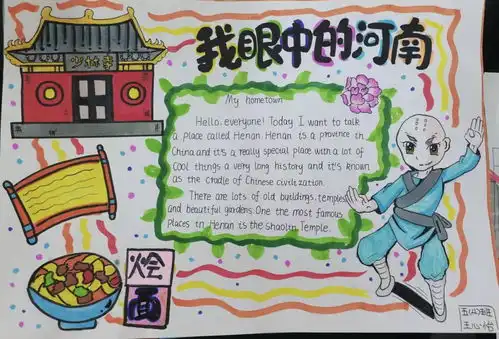 我眼中的河南
少林寺
My hometown
Hello, everyone! Today I want to talk
a place called Henan Henan is a province in
China and it's a really special place with a lot of
cool things a very long history and it's known
as the cradle of Chinese civilization.
There are lots of old buildings, temples
and beautiful gardens. One the most famous
Places in Henan is the Shaolin Temple.
烩
面
五(4)班
王心怡